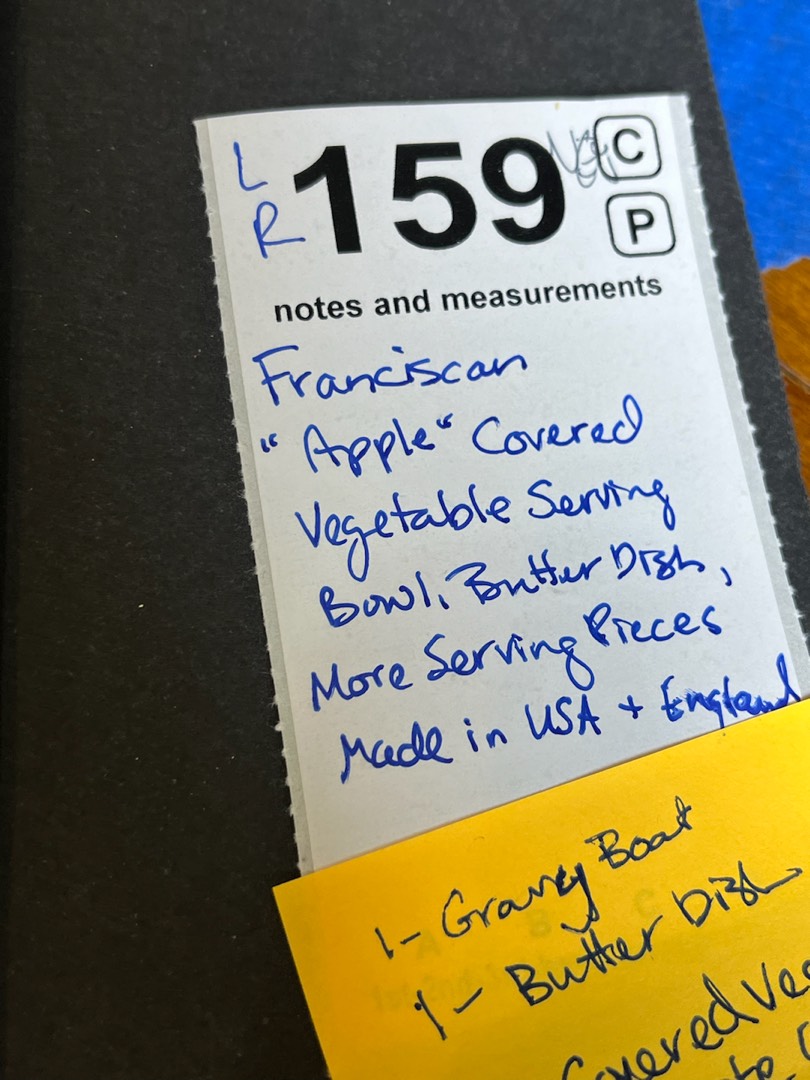 L
R
159
C
P
notes and measurements
Franciscan
"Apple" Covered
Vegetable Serving
Bowl, Butter Dish,
More Serving Pieces
Made in USA + England
1- Gravy Boat
1- Butter Dish
Covered Veg